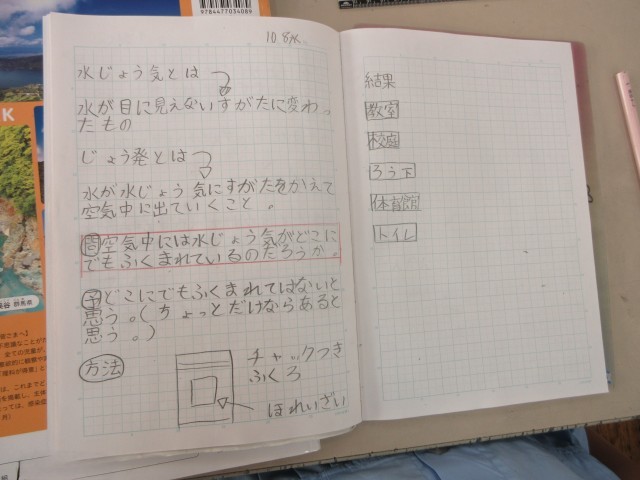 9784477034089
10.8水
水じょう気とは
水が目に見えないすがたに変わっ
たもの
じょう発とは
水が水じょう気にすがたをかえて
空気中に出ていくこと。
問空気中には水じょう気がどこに
でもふくまれているのだろうか。
予どこにでもふくまれてはないと
思う。(ちょっとだけならあると
思う。)
方法
チャックつき
ふくろ
ほれいざい
結果
教室
校庭
ろう下
体育館
トイレ